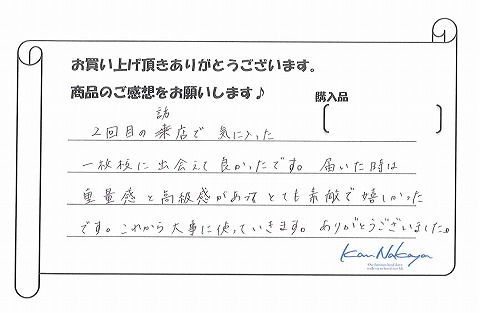 お買い上げ頂きありがとうございます。
商品のご感想をお願いします♪
購入品
2回目の来店で 気に入った
一枚板に出会えて良かったです。 届いた時は
重量感と高級感があって とても素敵で嬉しかった
です。これから大事に使っていきます。ありがとうございました。
Kan Nakaya